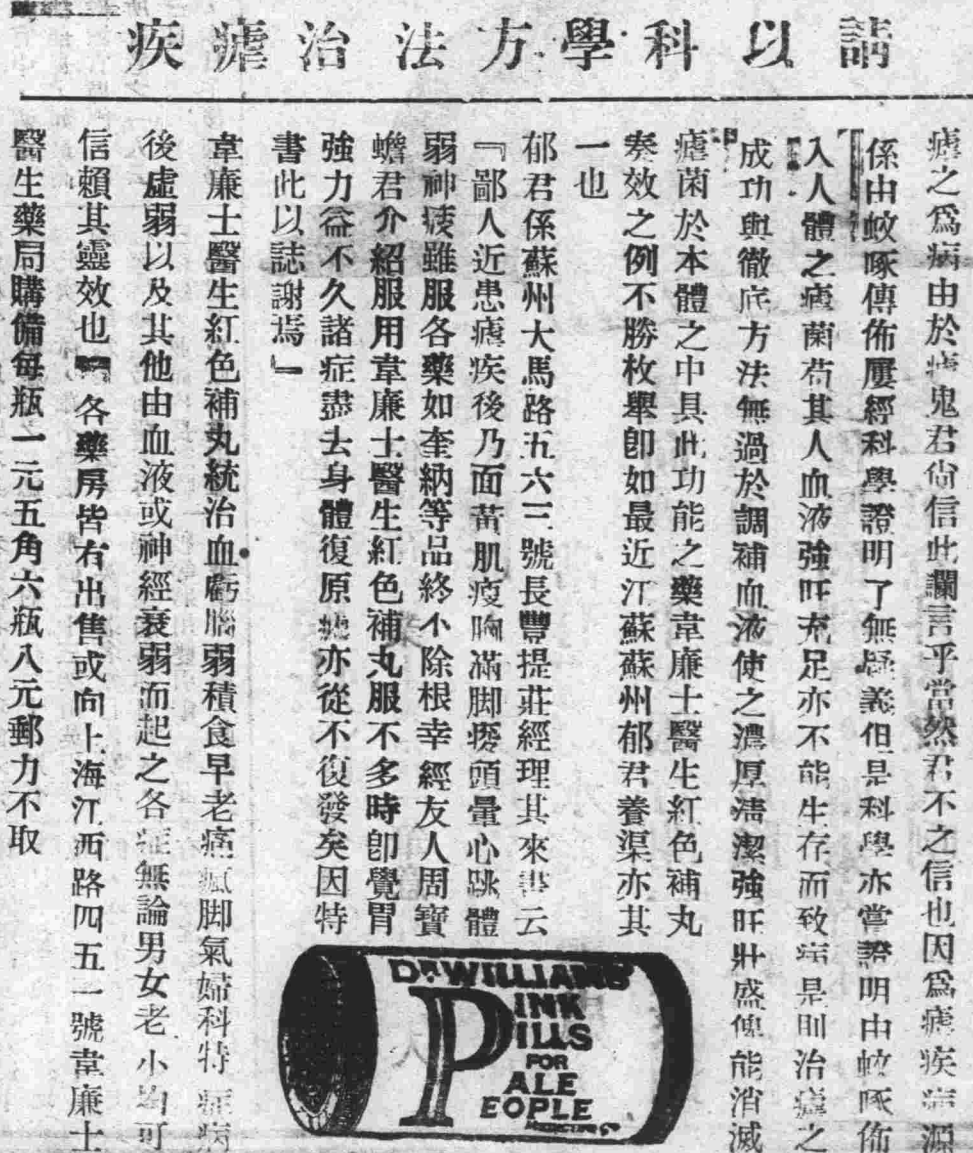 請以科學方法治瘧疾
瘧之爲病由於瘧鬼君尙信此讕言乎當然君不之信也因爲瘧疾病源
係由蚊啄傳佈屢經科學證明了無疑義但是科學亦嘗證明由蚊啄佈
入人體之瘧菌苟其人血液強旺充足亦不能生存而致病是則治瘧之
成功與徹底方法無過於調補血液使之濃厚淸潔強旺壯盛俾能消滅
瘧菌於本體之中具此功能之藥韋廉士醫生紅色補丸
奏效之例不勝枚舉卽如最近江蘇蘇州郁君養渠亦其
一也
郁君係蘇州大馬路五六三號長豐提莊經理其來書云
『鄙人近患瘧疾後乃面黃肌瘦胸滿脚痠頭暈心跳體
弱神疲雖服各藥如奎納等品終不除根幸經友人周寶
蟾君介紹服用韋廉士醫生紅色補丸服不多時卽覺胃
強力益不久諸症盡去身體復原瘧亦從不復發矣因特
書此以誌謝焉』
韋廉士醫生紅色補丸統治血虧腦弱積食早老痛瘋脚氣婦科特症病
後虛弱以及其他由血液或神經衰弱而起之各症無論男女老小均可
信賴其靈效也 各藥房皆有出售或向上海江西路四五一號韋廉士
醫生藥局購備每瓶一元五角六瓶八元郵力不取
DR WILLIAMS'
PINK
PILLS
FOR
PALE
PEOPLE